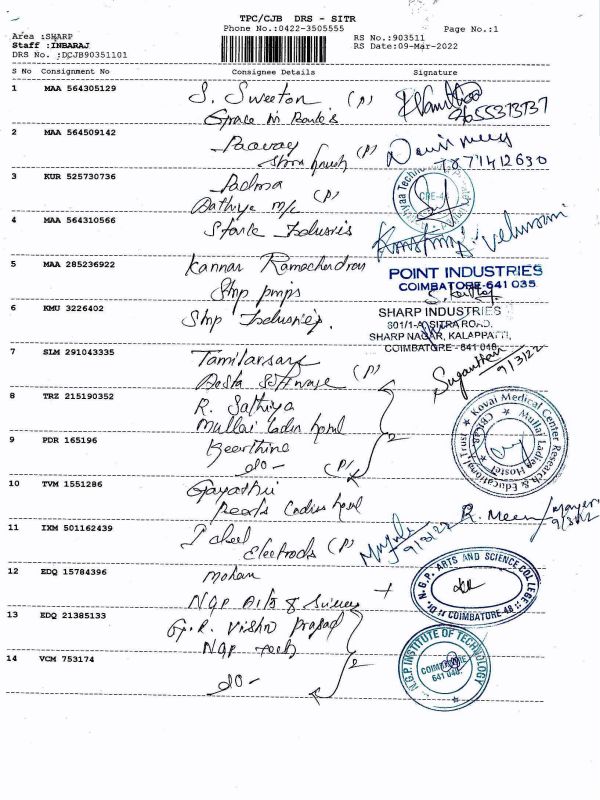 TPC/CJB DRS - SITR
Phone No.:0422-3505555 Page No.:1
Area :SHARP RS No.:903511
Staff :INBARAJ RS Date:09-Mar-2022
DRS No. :DCJB90351101
S No Consignment No Consignee Details Signature
1 MAA 564305129 S. Sweeton (P)
9655373737
2 MAA 564509142 (P)
7871412630
3 KUR 525730736 Padma (P)
CBE-4
4 MAA 564310566
5 MAA 285236922 Kannan Ramachandran POINT INDUSTRIES
COIMBATORE-641 035
6 KMU 3226402 SHARP INDUSTRIES
801/1-A, SITRA ROAD,
SHARP NAGAR, KALAPPATTI,
COIMBATORE - 641 048.
7 SLM 291043335 Tamilarasan Suganthan
Software (P) 9/3/22
8 TRZ 215190352 R. Sathiya Kovai Medical Center Research & Educational Trust
Mullai Ladies hostel Mullai Ladies Hostel
9 PDR 165196 Keerthina 2
do- (P)
10 TVM 1551286 Gayathri
Ladies hostel R. Meen
11 IXM 501162439 9/3/22 9/3/22
Electrods (P)
12 EDQ 15784396 mohan Dr. N.G.P. ARTS AND SCIENCE COLLEGE
NGP Arts & Science COIMBATORE-48
13 EDQ 21385133 G.R. Vishnu Prasad
NGP tech 2 N.G.P. INSTITUTE OF TECHNOLOGY
14 VCM 753174 COIMBATORE
do- 641 048.